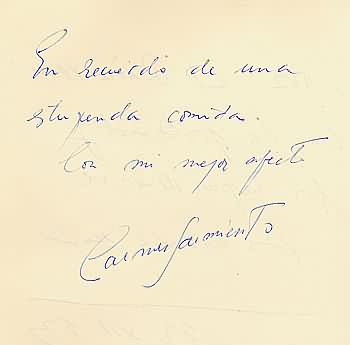 En recuerdo de una
estupenda comida.
Con mi mejor afecto
Carmen Sarmiento